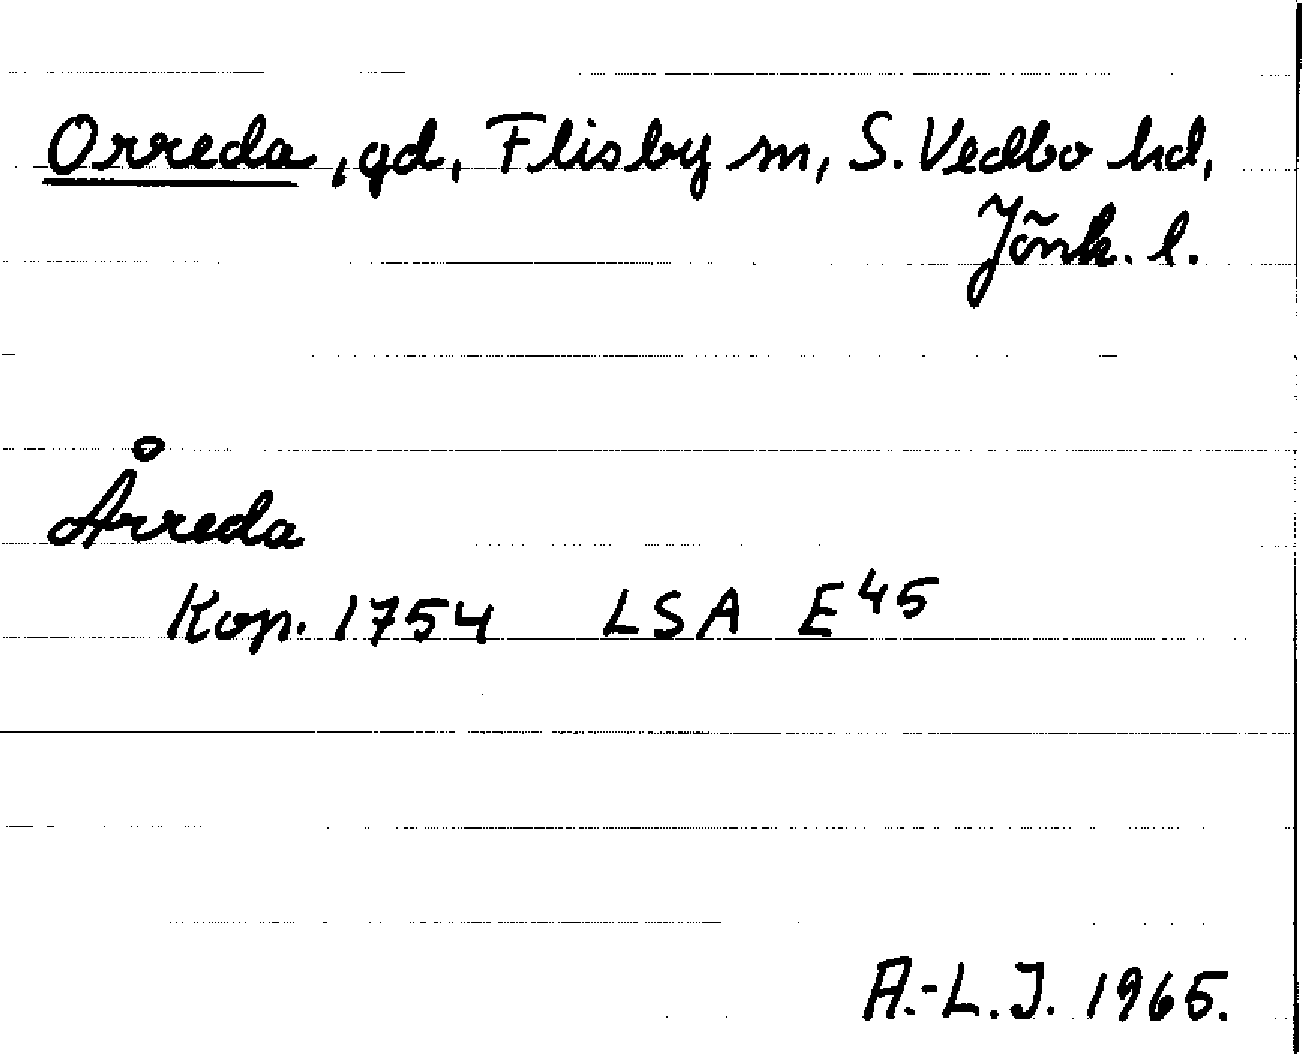 Orreda, gd, Flisby sn, S. Vedbo hd,
Jönk. l.
Årreda
Kop. 1754 LSA E45
A.-L.J. 1965.